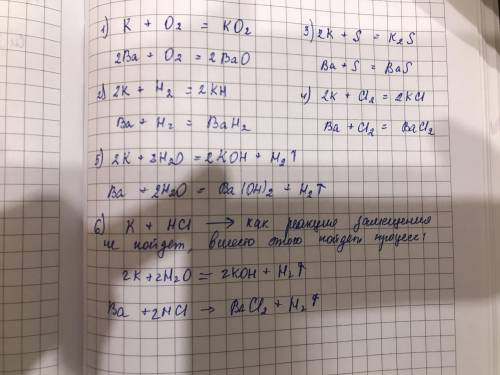 1) K + O2 = KO2
2Ba + O2 = 2BaO
2) 2K + H2 = 2KH
Ba + H2 = BaH2
3) 2K + S = K2S
Ba + S = BaS
4) 2K + Cl2 = 2KCl
Ba + Cl2 = BaCl2
5) 2K + 2H2O = 2KOH + H2↑
Ba + 2H2O = Ba(OH)2 + H2↑
6) K + HCl → как реакция замещения
не пойдет, вместо этого пойдет процесс:
2K + 2H2O = 2KOH + H2↑
Ba + 2HCl → BaCl2 + H2↑